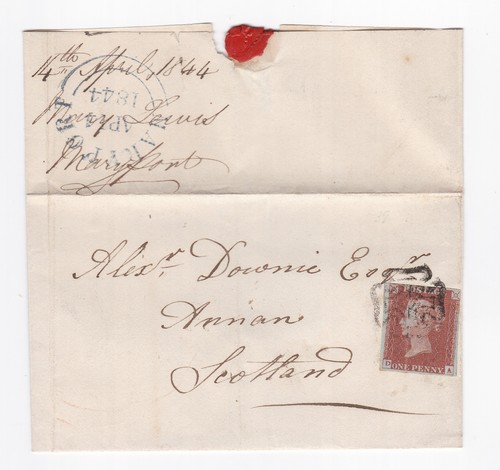 14th April, 1844
Mary Lewis
Maryport
MARYPORT
AP 14
1844
Alexr. Downie Esqr.
Annan
Scotland
POSTAGE
D ONE PENNY A